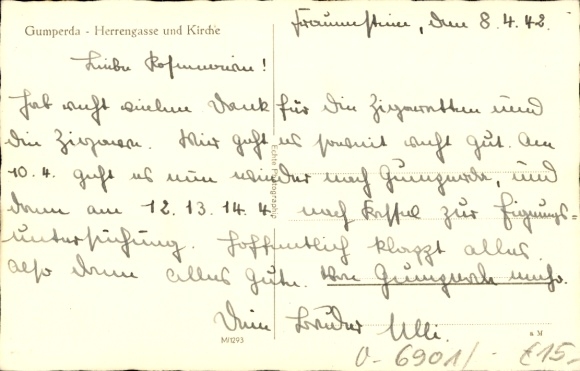 Gumperda - Herrengasse und Kirche
Frauenstein, den 8.4.42.
Liebe Rosemarie!
Hab recht vielen Dank für die Zigaretten und
die Zigarren. Mir geht es soweit recht gut. Am
10.4. geht es nun wieder nach Gumperda, und
dann am 12. 13. 14.4. nach Kassel zur Eignungs=
untersuchung. Hoffentlich klappt alles.
Also dann alles Gute. Von Gumperda mehr.
Dein Bruder Ulli.
Echte Photographie
M/1293
0-6901/- €15,-